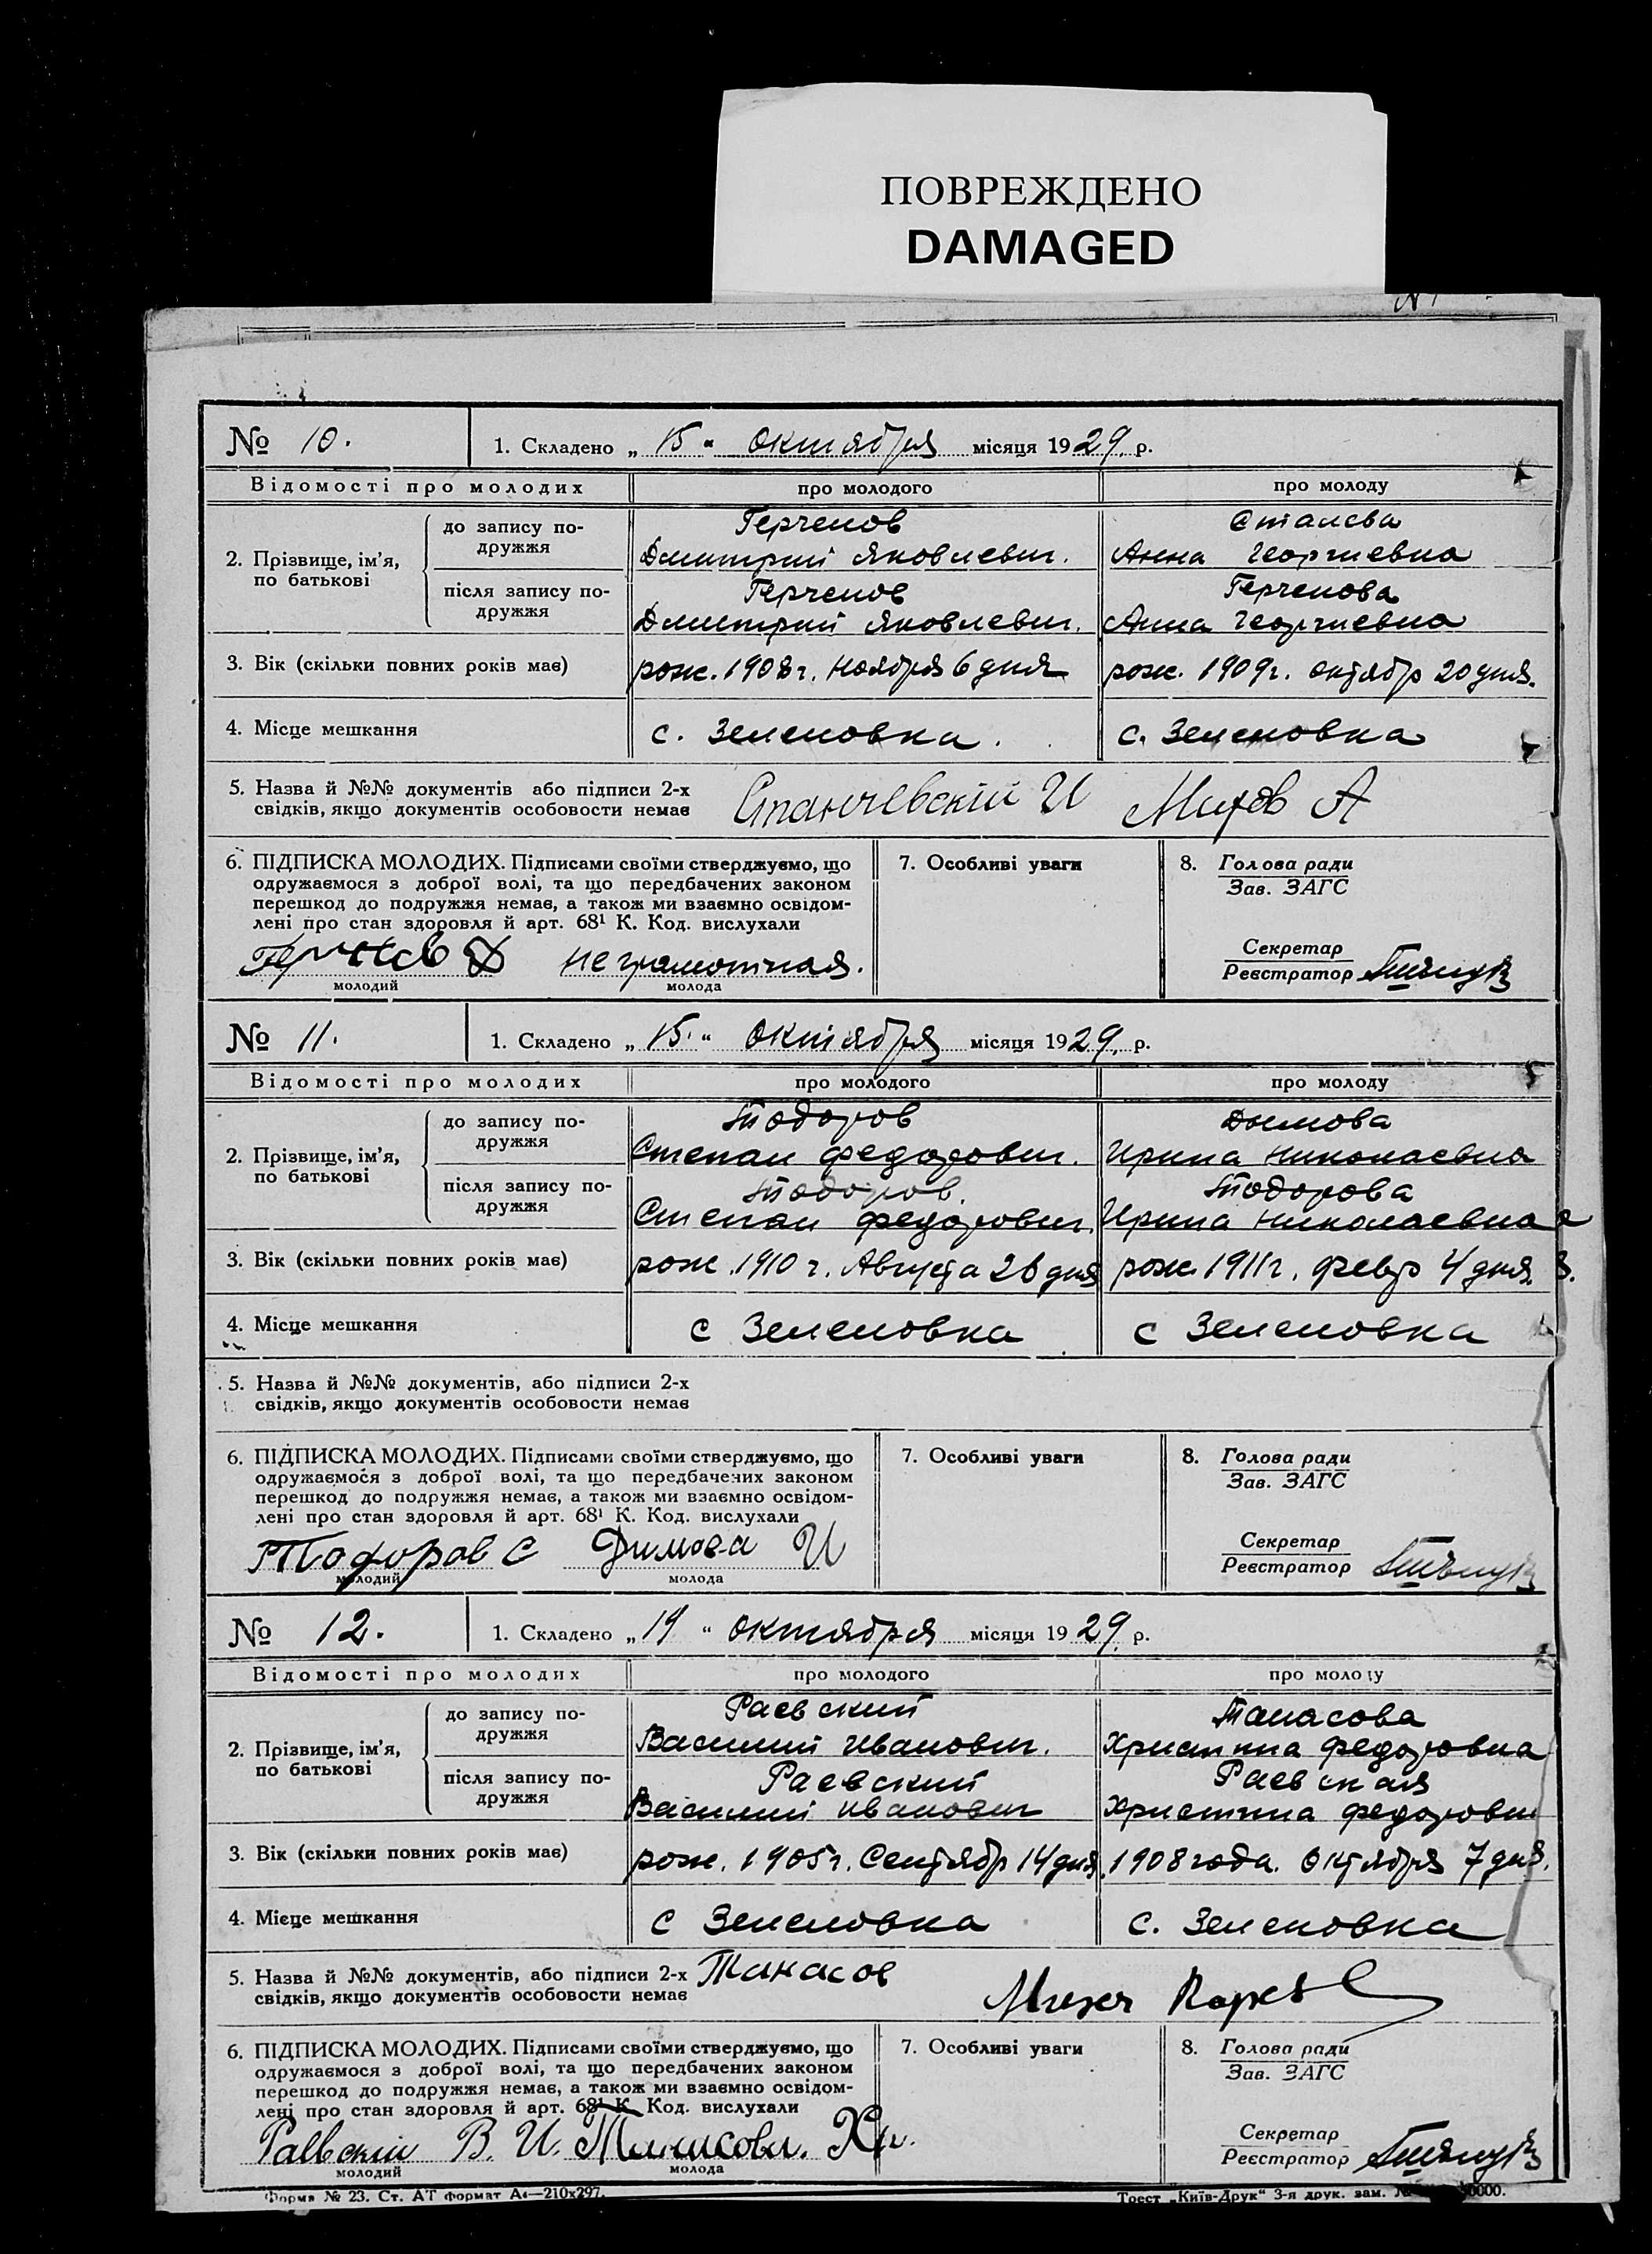 ПОВРЕЖДЕНО
DAMAGED
№ 10. 1. Складено „ 15 “ октября місяця 1929. р.
Відомості про молодих про молодого про молоду
2. Прізвище, ім’я, по батькові
до запису подружжя
Герченов Сталева
Дмитрий Яковлевич. Анна Георгиевна
після запису подружжя
Герченов Герченова
Дмитрий Яковлевич. Анна Георгиевна
3. Вік (скільки повних років має) рож. 1908 г. ноября 6 дня рож. 1909 г. октябр 20 дня.
4. Місце мешкання с. Зеленовка. с. Зеленовка
5. Назва й №№ документів або підписи 2-х
свідків, якщо документів особовости немає
Станчевскій И А
6. ПІДПИСКА МОЛОДИХ. Підписами своїми стверджуємо, що
одружаємося з доброї волі, та що передбачених законом
перешкод до подружжя немає, а також ми взаємно освідом-
лені про стан здоровля й арт. 68¹ К. Код. вислухали
7. Особливі уваги
8. Голова ради
Зав. ЗАГС
Секретар
Реєстратор
неграмотная.
молодий молода
№ 11. 1. Складено „ 15. “ октября місяця 1929. р.
Відомості про молодих про молодого про молоду
2. Прізвище, ім’я, по батькові
до запису подружжя
Тодоров Димова
Степан Федорович. Ирина Николаевна
після запису подружжя
Тодоров. Тодорова
Степан Федорович. Ирина Николаевна
3. Вік (скільки повних років має) рож. 1910 г. Августа 26 дня рож. 1911 г. февр 4 дня.
4. Місце мешкання с Зеленовка с Зеленовка
5. Назва й №№ документів, або підписи 2-х
свідків, якщо документів особовости немає
6. ПІДПИСКА МОЛОДИХ. Підписами своїми стверджуємо, що
одружаємося з доброї волі, та що передбачених законом
перешкод до подружжя немає, а також ми взаємно освідом-
лені про стан здоровля й арт. 68¹ К. Код. вислухали
7. Особливі уваги
8. Голова ради
Зав. ЗАГС
Секретар
Реєстратор
Тодоров С Димова И
молодий молода
№ 12. 1. Складено „ 19 “ октября місяця 1929. р.
Відомості про молодих про молодого про молоду
2. Прізвище, ім’я, по батькові
до запису подружжя
Раевский Танасова
Василий Иванович. Христина Федоровна
після запису подружжя
Раевский Раевская
Василий Иванович Христина Федоровн
3. Вік (скільки повних років має) рож. 1905 г. Сентябр 14 дня. 1908 года. Октября 7 дня.
4. Місце мешкання с Зеленовка с. Зеленовка
5. Назва й №№ документів, або підписи 2-х
свідків, якщо документів особовости немає
Танасов
6. ПІДПИСКА МОЛОДИХ. Підписами своїми стверджуємо, що
одружаємося з доброї волі, та що передбачених законом
перешкод до подружжя немає, а також ми взаємно освідом-
лені про стан здоровля й арт. 68¹ К. Код. вислухали
7. Особливі уваги
8. Голова ради
Зав. ЗАГС
Секретар
Реєстратор
Раевскій В. И. Танасова. Хр.
молодий молода
Форма № 23. Ст. АТ формат А₄—210х297. Трест „Київ-Друк“ 3-я друк. зам.